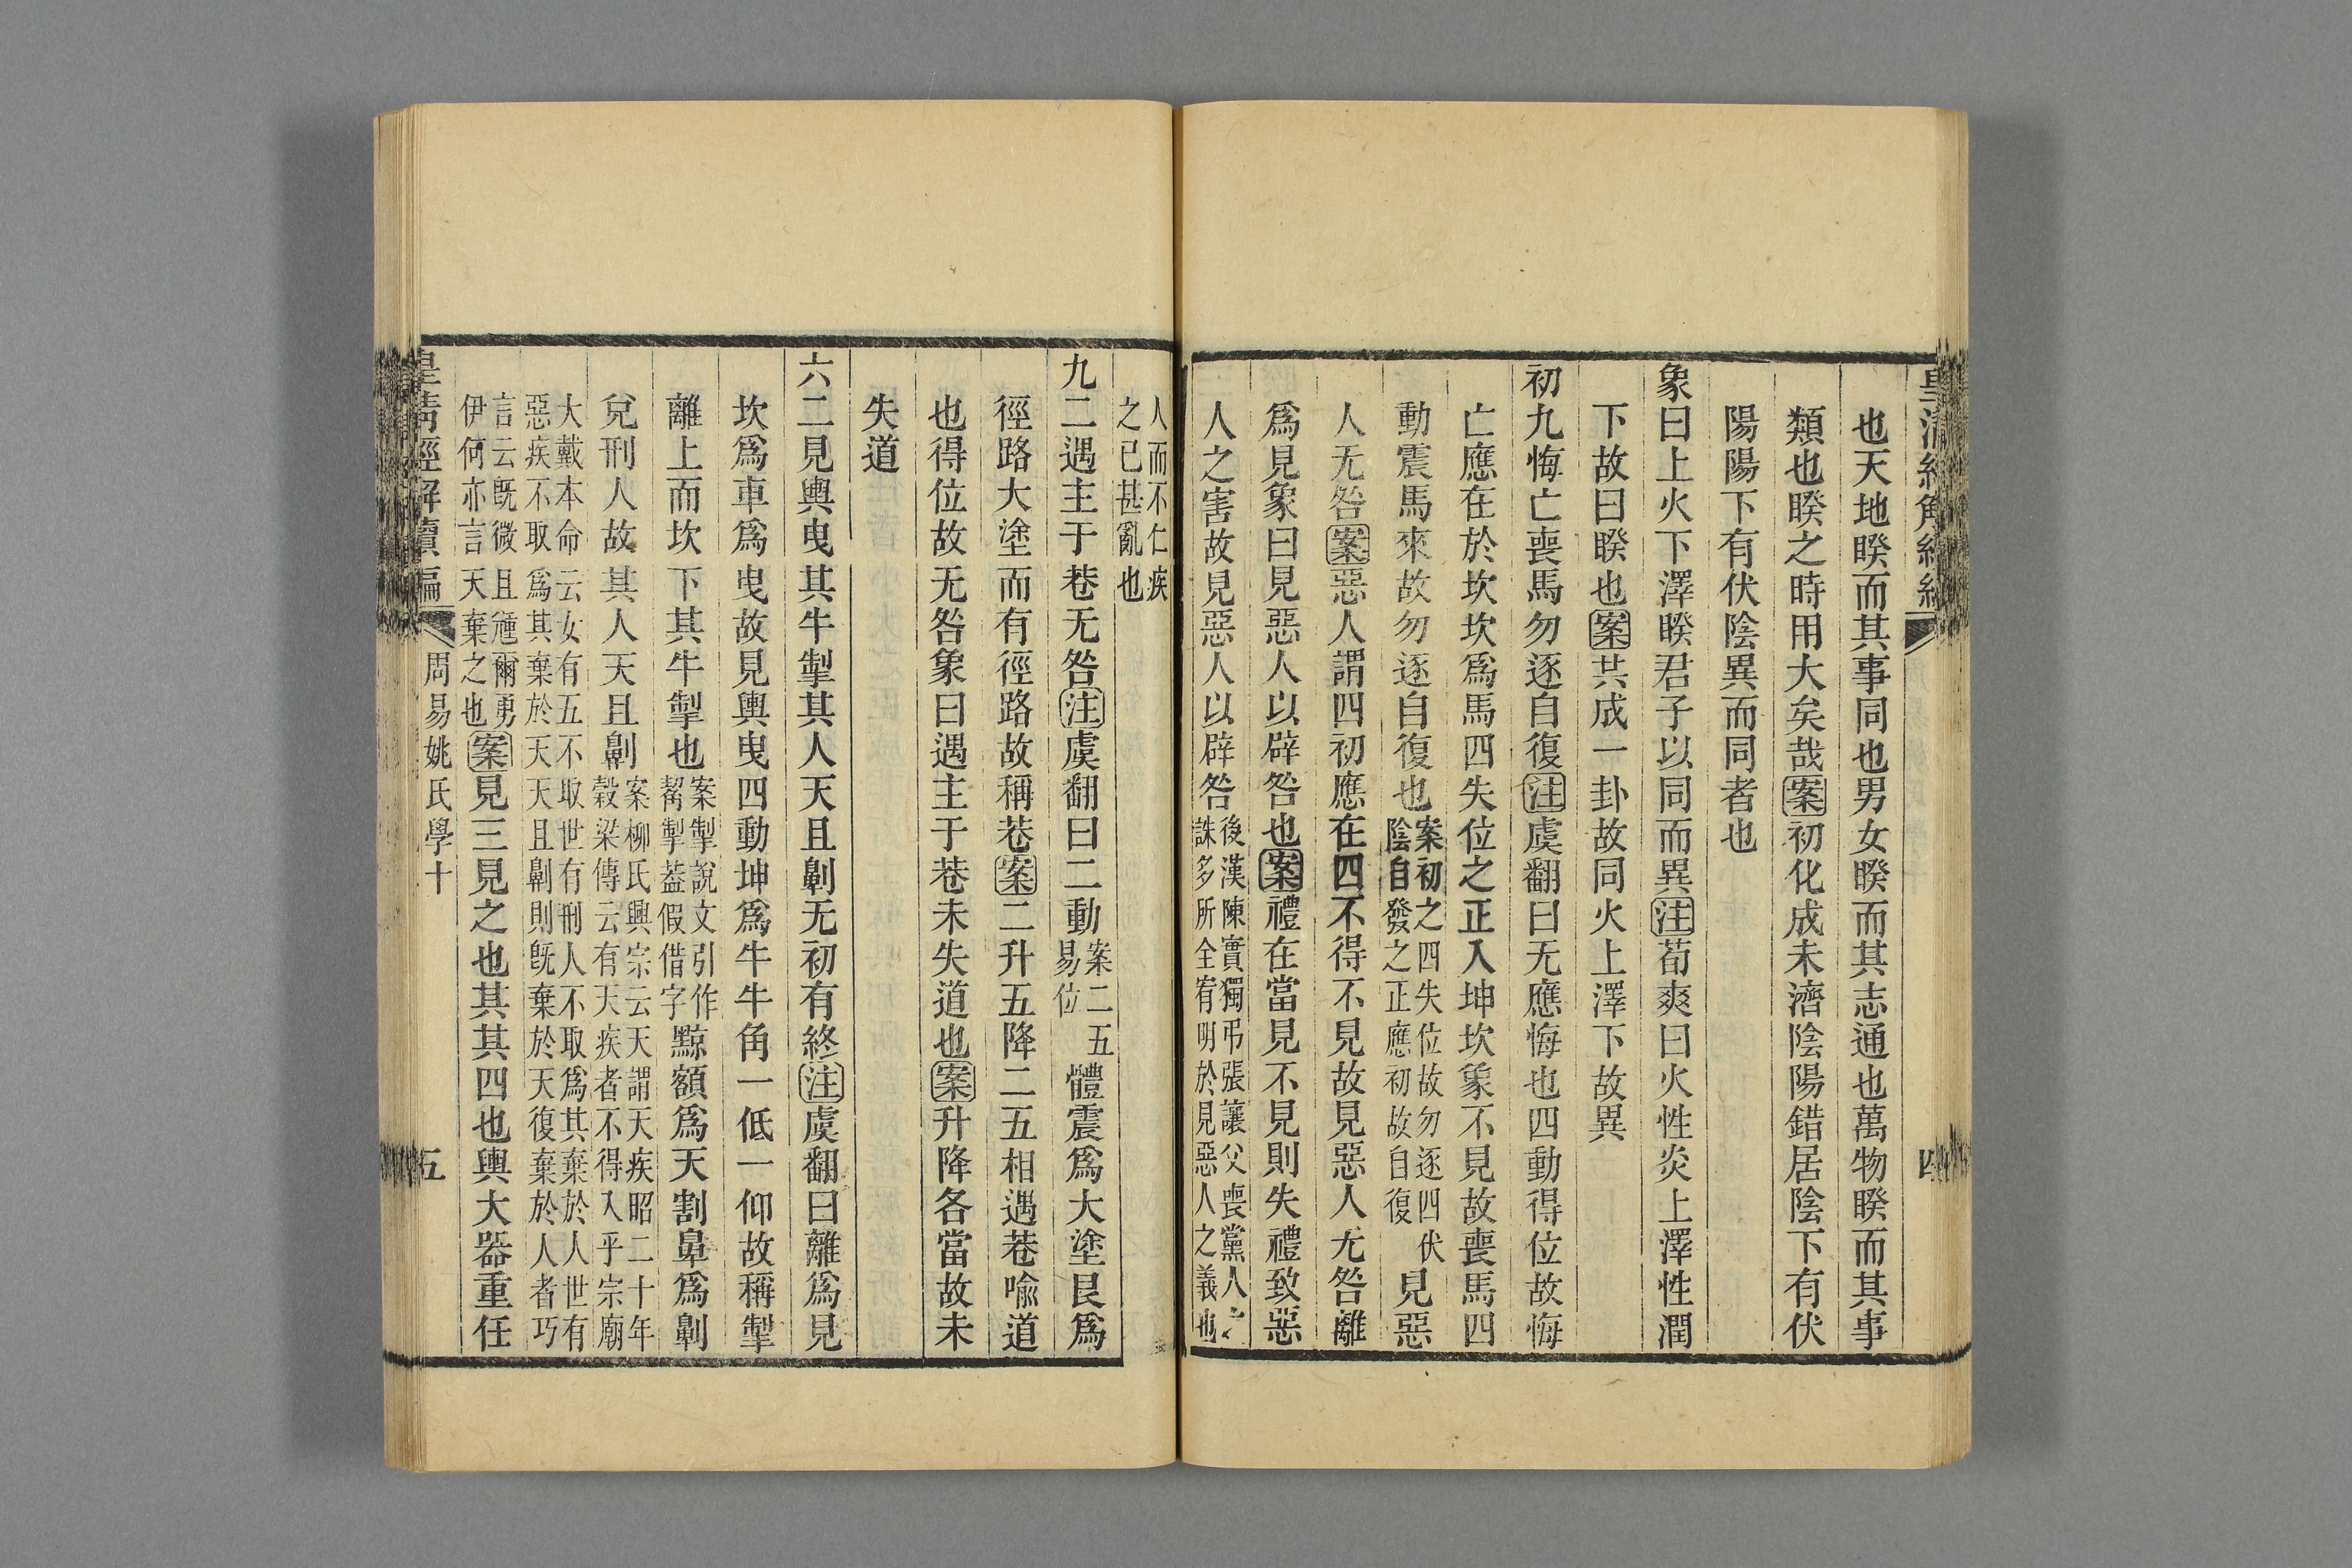 也天地睽而其事同也男女睽而其志通也萬物睽而其事
類也睽之時用大矣哉案初化成未濟陰陽錯居陰下有伏
陽陽下有伏陰異而同者也
象曰上火下澤睽君子以同而異注荀爽曰火性炎上澤性潤
下故曰睽也案共成一卦故同火上澤下故異
初九悔亡喪馬勿逐自復注虞翻曰无應悔也四動得位故悔
亡應在於坎坎爲馬四失位之正入坤坎象不見故喪馬四
動震馬來故勿逐自復也案初之四失位故勿逐四伏陰自發之正應初故自復見惡
人无咎案惡人謂四初應在四不得不見故見惡人无咎離
爲見象曰見惡人以辟咎也案禮在當見不見則失禮致惡
人之害故見惡人以辟咎後漢陳實獨弔張讓父喪黨人之誅多所全宥明於見惡人之義也
人而不仁疾之已甚亂也
九二遇主于巷无咎注虞翻曰二動案二五易位體震爲大塗艮爲
徑路大塗而有徑路故稱巷案二升五降二五相遇巷喩道
也得位故无咎象曰遇主于巷未失道也案升降各當故未
失道
六二見輿曳其牛掣其人天且劓无初有終注虞翻曰離爲見
坎爲車爲曳故見輿曳四動坤爲牛牛角一低一仰故稱掣
離上而坎下其牛掣也案掣說文引作觢掣葢假借字黥額爲天割鼻爲劓
兌刑人故其人天且劓案柳氏興宗云天謂天疾昭二十年穀梁傳云有天疾者不得入乎宗廟
大戴本命云女有五不取世有刑人不取爲其棄於人世有惡疾不取爲其棄於天天且劓則旣棄於天復棄於人者巧
言云旣微且尰爾勇伊何亦言天棄之也案見三見之也其其四也輿大器重任
皇淸經解續編
周易姚氏學十
五